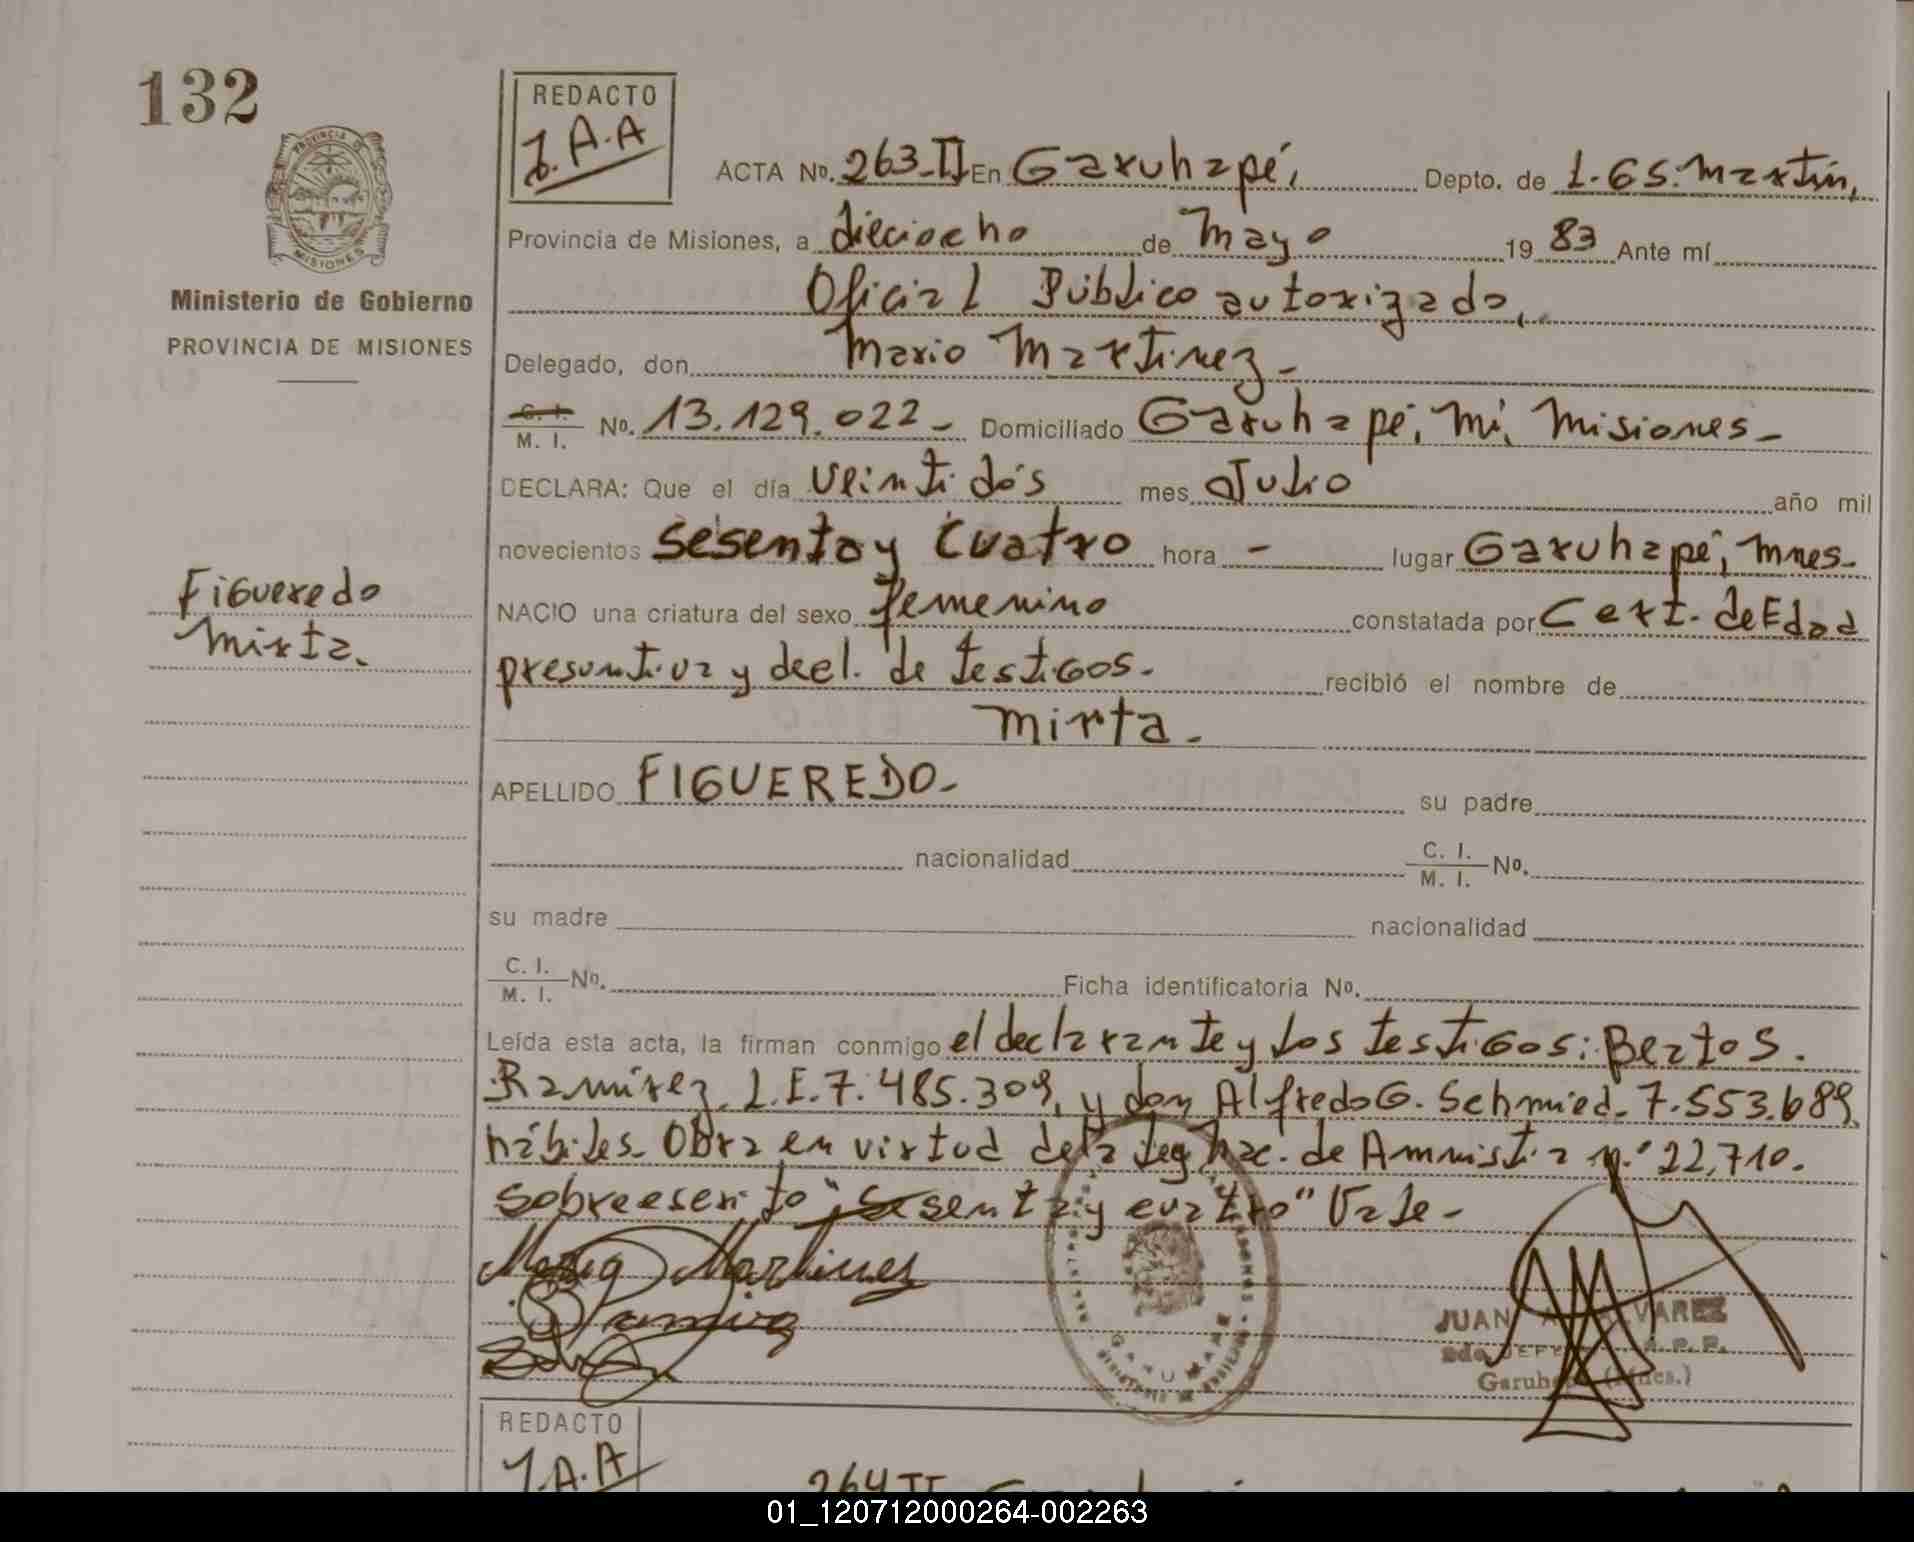 132
PROVINCIA DE MISIONES
Ministerio de Gobierno
PROVINCIA DE MISIONES
Figueredo
Mirta.
REDACTO
J.A.A
ACTA Nº. 263-II En Garuhapé, Depto. de L.GS.Martín,
Provincia de Misiones, a dieciocho de Mayo 19 83 Ante mí
Oficial Público autorizado,
Delegado, don Mario Martinez-
C. I.
M. I. Nº. 13.129.022- Domiciliado Garuhapé, Mi, Misiones-
DECLARA: Que el día veintidós mes Julio año mil
novecientos sesenta y cuatro hora - lugar Garuhapé, Mnes-
NACIO una criatura del sexo femenino constatada por Cert. de Edad
presuntiva y decl. de testigos. recibió el nombre de
Mirta-
APELLIDO FIGUEREDO- su padre
nacionalidad C. I.
M. I. Nº.
su madre nacionalidad
C. I.
M. I. Nº. Ficha identificatoria Nº.
Leída esta acta, la firman conmigo el declarante y los testigos: S.
Ramírez, L.E.7.485.309, y don Alfredo G. Schmied. 7.553.689,
hábiles. Obra en virtud de la Ley Nac. de Amnistia n.º 22.710.
Sobreescrito "Sesenta y cuatro" Vale-
Mario Martinez
Ramirez
GARUHAPE
JUAN A. ALVAREZ
Garuhapé (Mnes.)
REDACTO
J.A.A
264 II
01_120712000264-002263